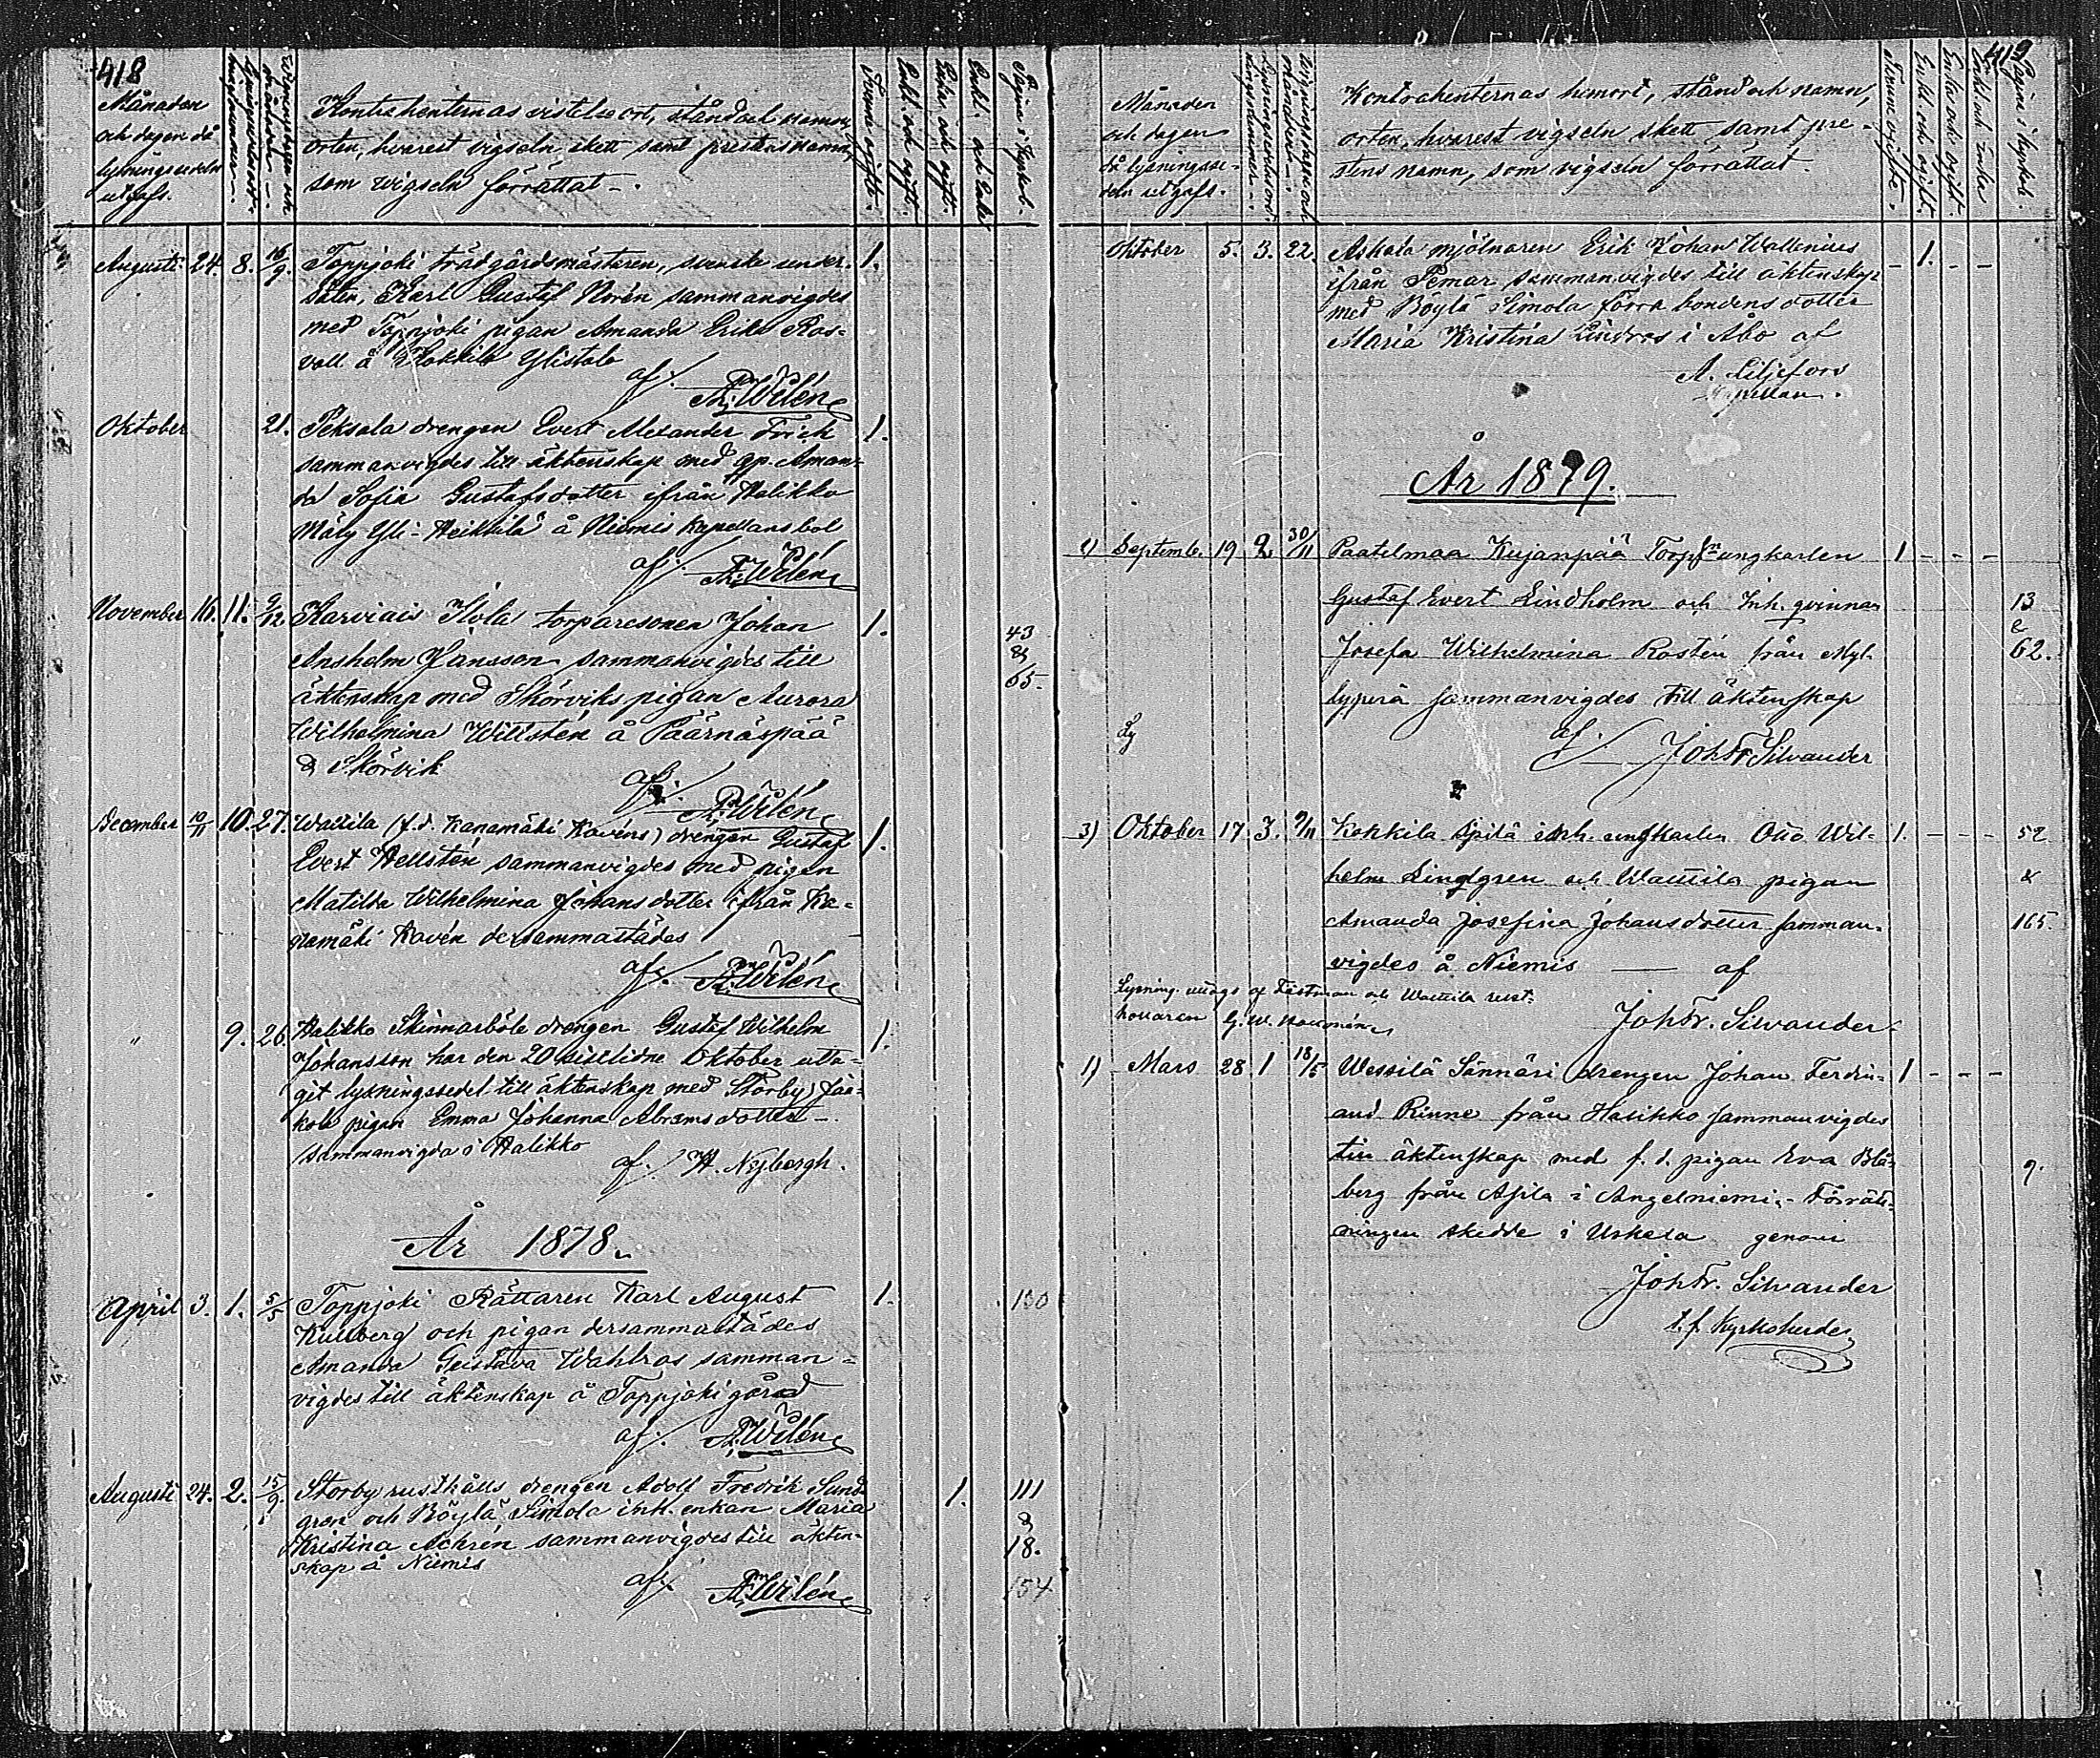 418
Månaden
och dagen då
lysningssedeln
utgafs.
Kontrahenternas vistelseort, stånd och namn,
orten, hvarest vigseln skett samt prestens namn,
som wigseln förrättat.
Förme ogifte.
Enkl. och ogift.
Enka och ogift.
Enkl. och Enka
Pagina i Kyrkob.
Augusti 24. 8. 16/9. Toppjoki trädgårdsmästaren, svenske under- 1.
såten, Karl Gustaf Norén sammanvigdes
med Toppjoki pigan Amanda Erika Ros-
vall å Kokkila Ylistalo
af/. Wilén
Oktober 21. Peksala drengen Evert Alexander Frick 1.
sammanvigdes till äktenskap med gp. Aman-
da Sofia Gustafsdotter ifrån Halikko
Märy Yli-Heikkilä å Niemis Kapellansbol
af/. Wilén
November 16. 11. 9/12 Karviais Ilola torparesonen Johan 1. 43
Anshelm Jansson sammanvigdes till &
äktenskap med Skörviks pigan Aurora 65.
Wilhelmina Willstén å Päärnäspää
& Skörvik
af/. Wilén
December 10/11 10. 27. Wallila (f.d. Kanamäki Kavéns) drengen Gustaf 1.
Evert Hellstén sammanvigdes med pigan
Matilda Wilhelmina Johansdotter ifrån Ka-
namäki Kavén dersammastädes
af/. Wilén
" 9. 26. Halikko Skinnarböle drengen Gustaf Wilhelm 1.
Johansson har den 20 sistlidne Oktober utta-
git lysningssedel till äktenskap med Storby Jaa-
kola pigan Emma Johanna Abramsdotter
sammanvigda i Halikko
af/. Nybergh.
År 1878.
April 3. 1. 5/5 Toppjoki Rättaren Karl August 1. 130
Kullberg och pigan dersammastädes
Amanda Gustava Wahlros samman-
vigdes till äktenskap å Toppjoki gård
af/. Wilén
Augusti 24. 2. 15/9. Storby rusthålls drengen Adolf Fredrik Sund- 1. 111
gren och Böylä Simola inh. enkan Maria &
Kristina Achrén sammanvigdes till äkten- 18.
skap å Niemis
af/. Wilén 154
419
Månaden
och dagen
då lysningsse-
deln utgafs.
Kontrahenternas hemort, stånd och namn,
orten, hvarest vigseln skett, samt pre-
stens namn, som vigseln förrättat.
Enkl och ogift.
Enka och ogift.
Enkl och Enka
Pagina i kyrkob.
Oktober 5. 3. 22. Askala mjölnaren Erik Johan Wallenius - 1. - -
ifrån Pemar sammanvigdes till äktenskap
med Böylä Simola förra bondens dotter
Maria Kristina Lindros i Åbo af
A. Liljefors
Kapellan.
År 1879.
1) Septemb. 19 2 30/11 Paatelmaa Kujanpää Torpsn ungkarlen 1 - - -
Gustaf Evert Lindholm och Inh. qvinnan 13
&
Josefa Wilhelmina Rostén från Myl- 62.
lyperä sammanvigdes till äktenskap
Ly
af. Joh Fr Silvander
3) Oktober 17. 3. 9/11 Kokkila Spilä inh. ungkarlen Otto Wil- 1. - - - 52
helm Lindgren och Wallila pigan &
Amanda Josefina Johansdotter samman- 165.
vigdes å Niemis — af
Lysning uttogs af Fästman och Wallila rust-
hollaren G. W.
Joh Fr. Silvander
1) Mars 28 1 18/5 Wessilä Sännäri drengen Johan Ferdin- 1 - - -
and Rinne från Halikko sammanvigdes
till äktenskap med f. d. pigan Eva Blå- 9.
berg från Asila i Angelniemi. - Förrätt-
ningen skedde i Uskela genom
Joh Fr. Silvander
t.f. Kyrkoherde